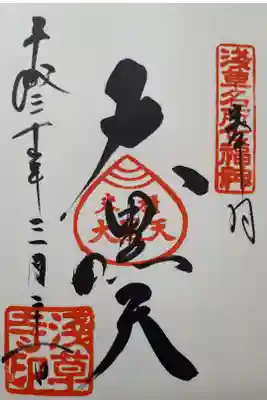 浅草名所七福神
奉拝
大黒天
平成三十年三月二十一日
浅草寺印